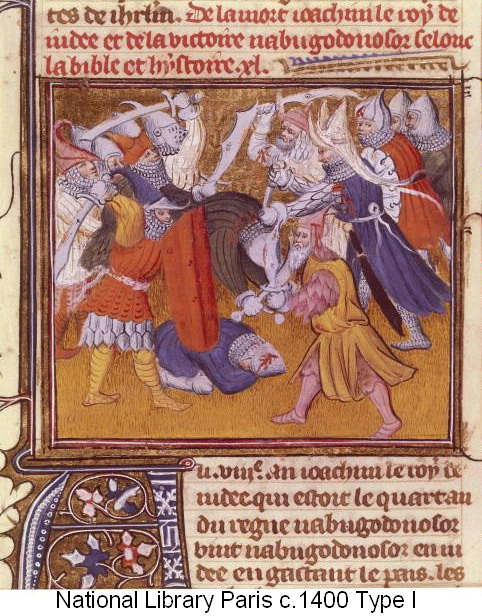 tes de ihrlm. De la mort ioachim le roy de
iudee et de la victoire nabugodonosor selonc
la bible et hystoire .xl.
u .viije. an ioachim le roy de
iudee. qui estoit le quart an
du regne nabugodonosor
vint nabugodonosor en iu
dee en gastant le pais. les
National Library Paris c.1400 Type I